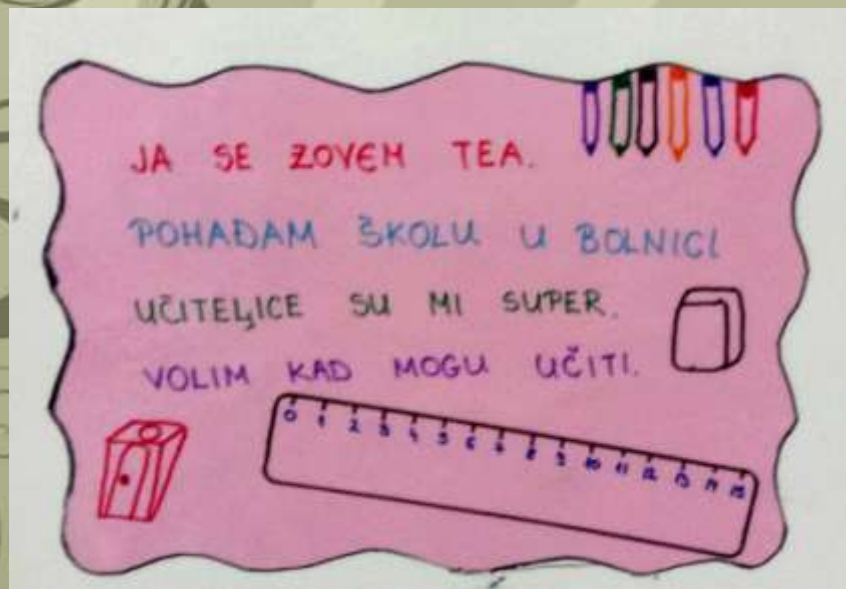 JA SE ZOVEM TEA.
POHAĐAM ŠKOLU U BOLNICI
UČITELJICE SU MI SUPER.
VOLIM KAD MOGU UČITI.
0 1 2 3 4 5 6 7 8 9 10 11 12 13 14 15